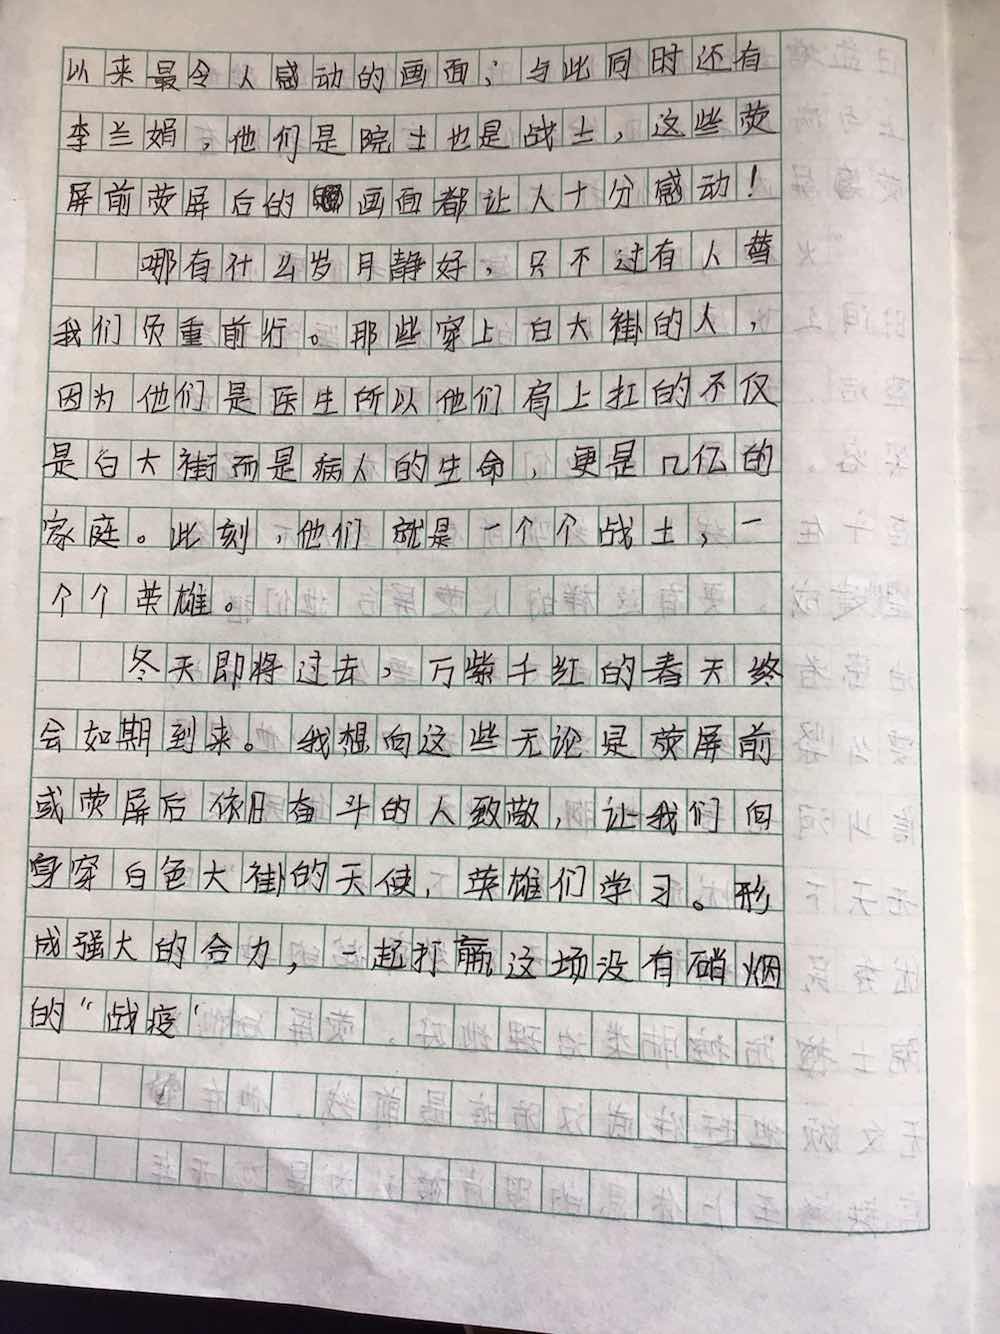 以来最令人感动的画面；与此同时还有
李兰娟，他们是院士也是战士，这些荧
屏前荧屏后的画面都让人十分感动！
哪有什么岁月静好，只不过有人替
我们负重前行。那些穿上白大褂的人，
因为他们是医生所以他们肩上扛的不仅
是白大褂而是病人的生命，更是几亿的
家庭。此刻，他们就是一个个战士，一
个个英雄。
冬天即将过去，万紫千红的春天终
会如期到来。我想向这些无论是荧屏前
或荧屏后依旧奋斗的人致敬，让我们向
身穿白色大褂的天使，英雄们学习。形
成强大的合力，一起打赢这场没有硝烟
的“战疫”